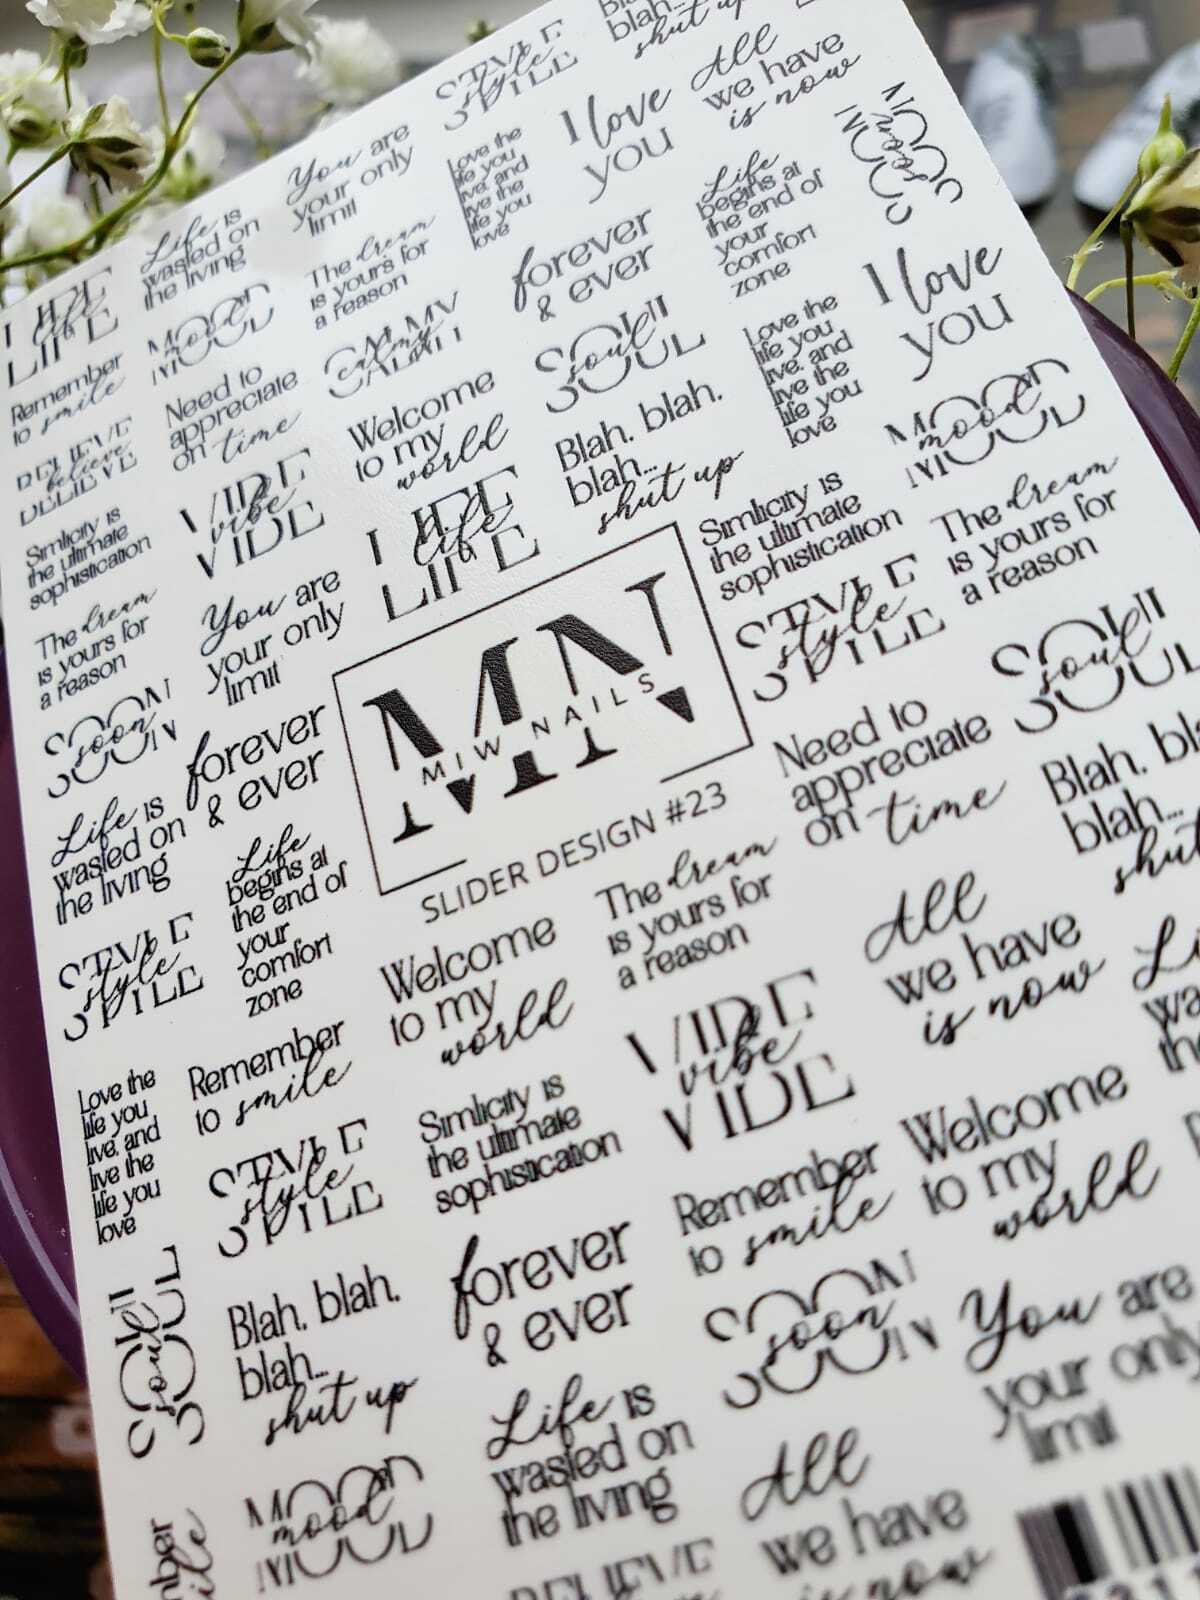 STYLE
style
blah...
shut up
All
we have
is now
You are
your only
limit
Love the
life you
live, and
live the
life you
love
I love
you
SOON
soon
Life is
wasted on
the living
The dream
is yours for
a reason
forever
& ever
Life
begins at
the end of
your
comfort
zone
LIFE
life
LIFE
MOOD
mood
MOOD
calmy
SOUL
soul
SOUL
Love the
life you
live, and
live the
life you
love
I love
you
Remember
to smile
Need to
appreciate
on time
Welcome
to my
world
Blah, blah,
blah...
shut up
MOOD
mood
MOOD
BELIEVE
believe
BELIEVE
VIBE
vibe
VIBE
LIFE
life
LIFE
Simlicity is
the ultimate
sophistication
The dream
is yours for
a reason
Simlicity is
the ultimate
sophistication
You are
your only
limit
MN
MIW NAILS
SLIDER DESIGN #23
STYLE
style
STYLE
SOUL
soul
SOUL
The dream
is yours for
a reason
forever
& ever
Need to
appreciate
on time
Blah, bla
blah...
shut
SOON
soon
SOON
Life is
wasted on
the living
Life
begins at
the end of
your
comfort
zone
The dream
is yours for
a reason
All
we have
is now
STYLE
style
STYLE
Welcome
to my
world
VIBE
vibe
VIBE
Li
wa
the
Love the
life you
live, and
live the
life you
love
Remember
to smile
Simlicity is
the ultimate
sophistication
Remember
to smile
Welcome
to my
world
STYLE
style
STYLE
SOUL
soul
SOUL
Blah, blah,
blah...
shut up
forever
& ever
SOON
soon
SOON
You are
your only
limit
MOOD
mood
MOOD
Life is
wasted on
the living
All
we have
is now
mber
ile
BELIEVE